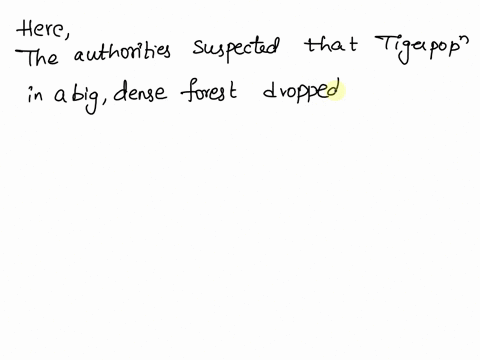 Here,
The authorities suspected that Tiger popⁿ
in a big, dense forest dropped